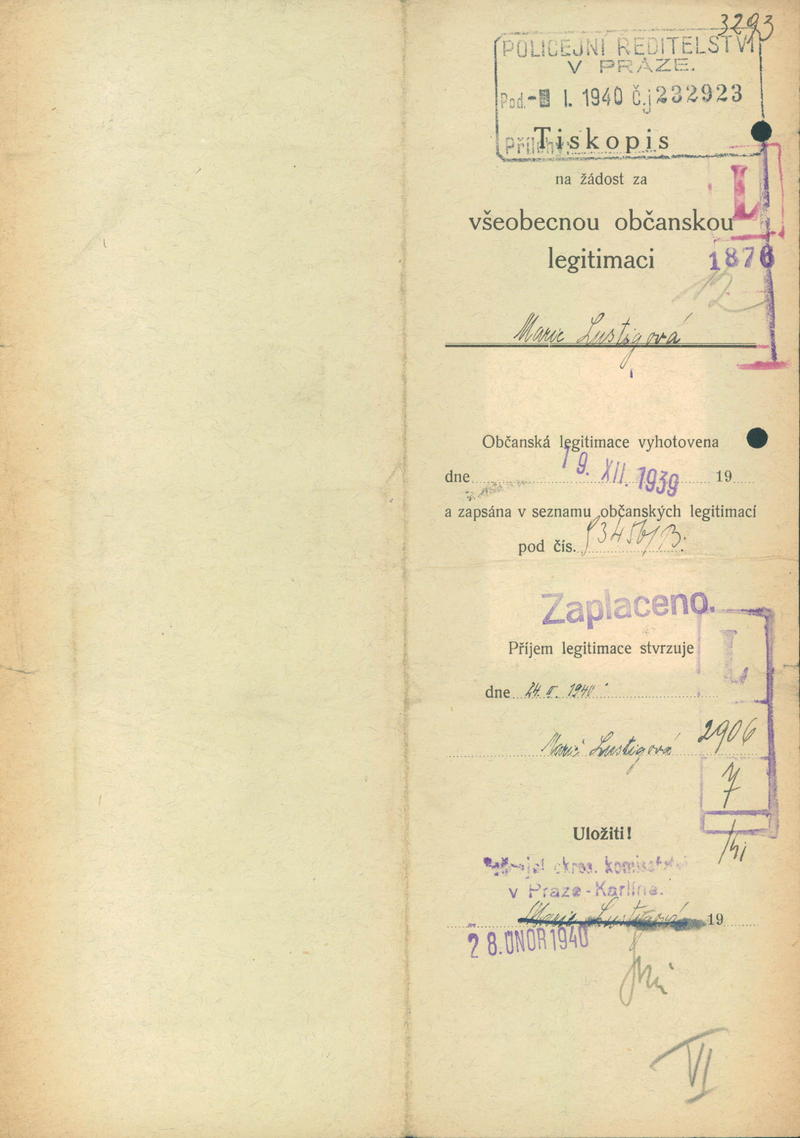 3293
POLICEJNÍ ŘEDITELSTVÍ
V PRAZE.
Pod. - I. 1940 Č.j 232923
Příloh
Tiskopis
na žádost za
L
všeobecnou občanskou
legitimaci
1876
12
Marie Lustigová
Občanská legitimace vyhotovena
dne 19. XII. 1939 19
a zapsána v seznamu občanských legitimací
pod čís. 93456/B.
Zaplaceno.
L
Příjem legitimace stvrzuje
dne 24. II. 1940
2906
Marie Lustigová
7
Uložiti!
okres. komisařství
v Praze-Karlíně.
Marie Lustigová 19
28. ÚNOR 1940
VI